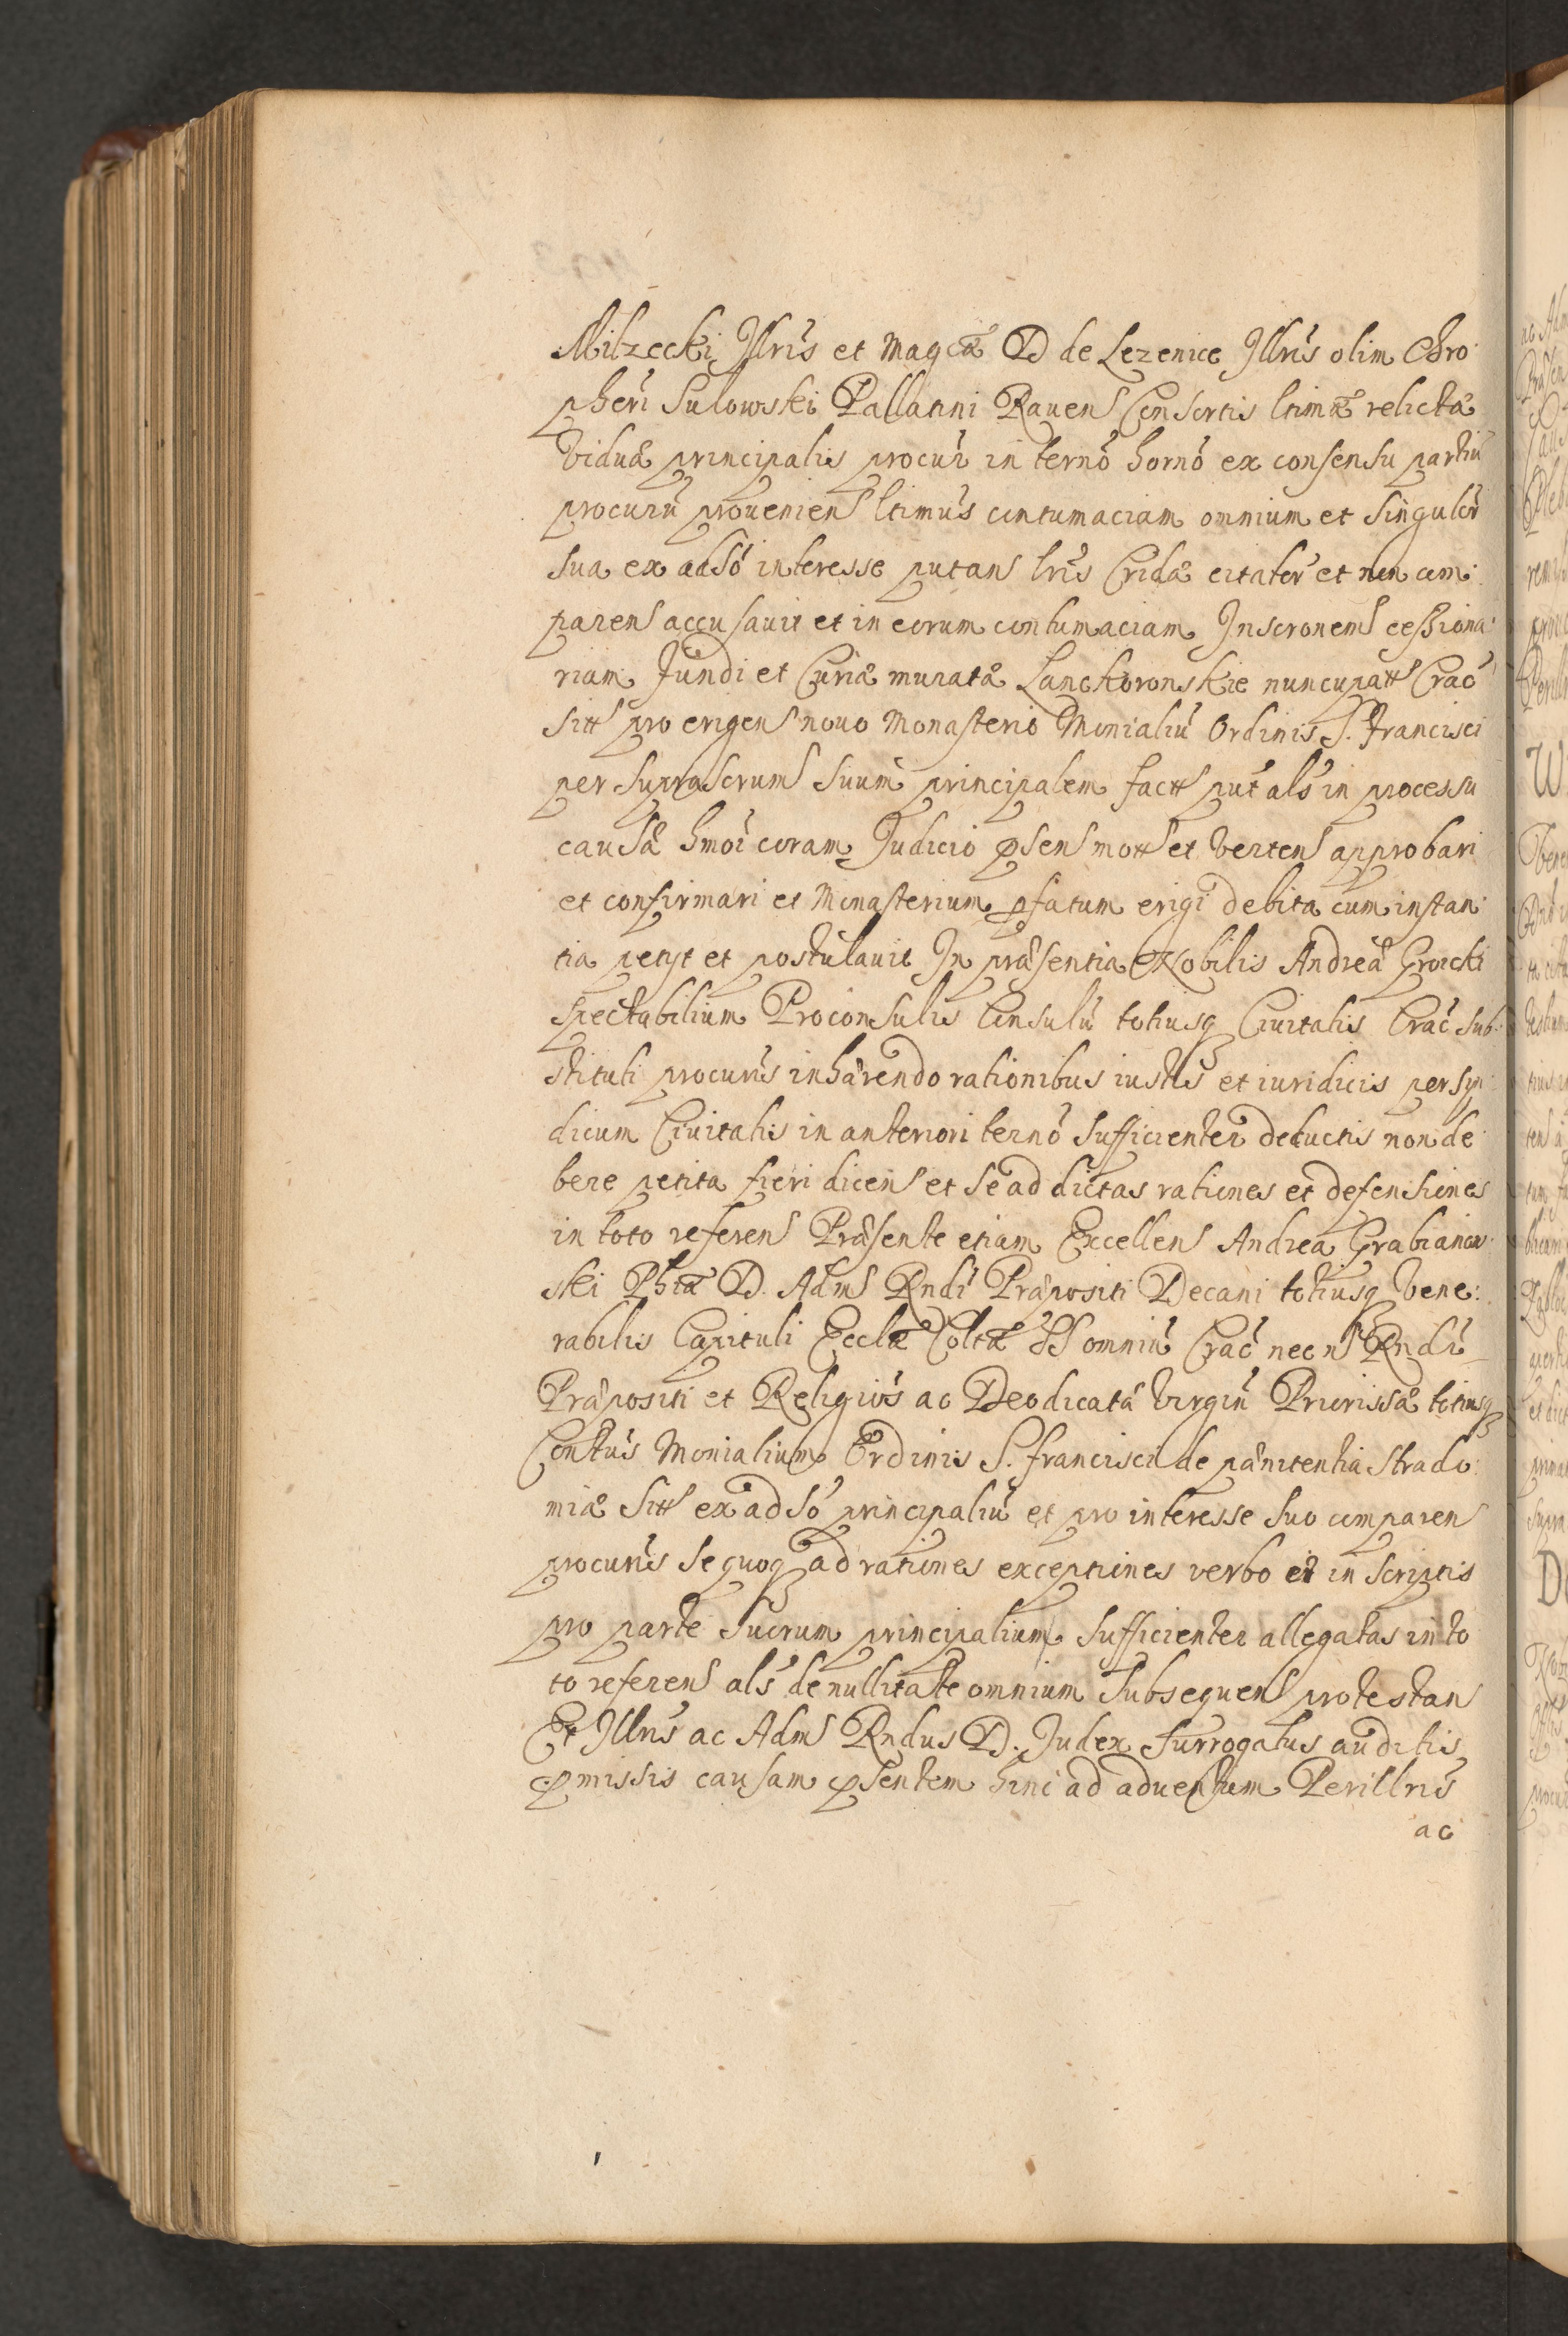 Milzecki Jllris et Magcæ D de Lezenice Jllris olim Chro
pheri Sulowski Pallatini Rauen Consortis ltimæ relictæ
viduæ principalis procur in terno horno ex consensu partiu
procuru prouenien ltimus contumaciam omnium et singulor
sua ex adso interesse putan lris Cridæ citator et non com
paren accusauit et in eorum contumaciam Inscronem cessiona
riam fundi et Curiæ muratæ Lanckoronskie nuncupatt Crac
sitt pro erigen nouo Monasterio Monialiu Ordinis S. Francisci
per suprascrum suum principalem factt put als in processu
causæ hmoi coram Judicio psen mott et verten approbari
et confirmari et Monasterium pfatum erigi debita cum instan
tia petyt et postulauit In præsentia Nobilis Andreæ Groicki
spectabilium Proconsulis Consulu totiusq Ciuitatis Crac sub
stituti procuris inhærendo rationibus iustis et iuridicis per syn
dicum Ciuitatis in anteriori terno sufficienter deductis non de
bere petita fieri dicen et se ad dictas rationes et defensiones
in toto referen Præsente etiam Excellen Andrea Grabianow
ski Phiæ D. Adm Rndi Præpositi Decani totiusq Vene:
rabilis Capituli Ecclæ Coltæ SS omniu Crac nec n Rndi
Præpositi et Religios ac Deodicatæ Virgin Priorissæ totiusq
Contus Monialium Ordinis S. francisci de pænitentia Strado:
miæ sitt ex adso principaliu et pro interesse suo comparen
procuris se quoq ad rationes exceptiones verbo et in scriptis
pro parte suorum principalium sufficienter allegatas in to
to referen als de nullitate omnium subsequen protestan
Et Jllris ac Adm Rndus D. Judex surrogatus auditis
pmissis causam psentem hinc ad aduentum Perillris
ac